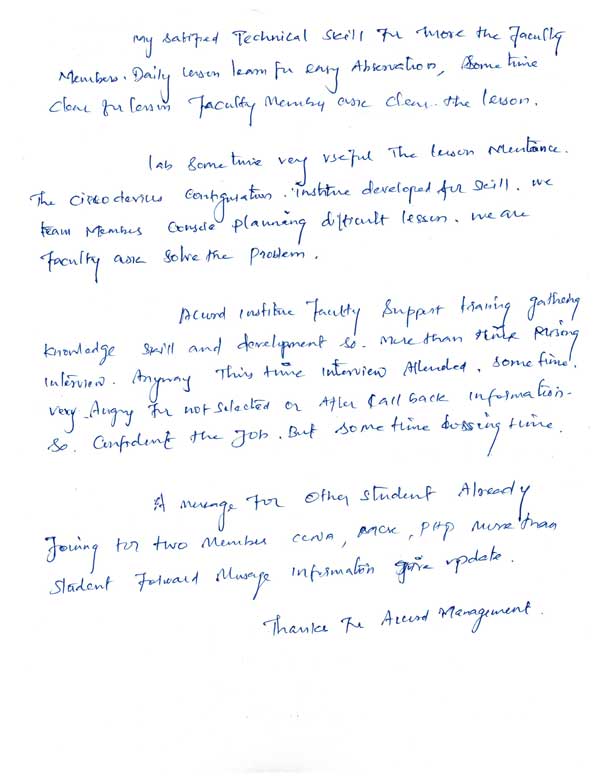 My satified Technical Skill For More the Faculty
Members. Daily lesson learn for easy Observation, Some time
Clear for lesson Faculty Member ask clear the lesson.
lab Some time very useful The lesson
The Cisco devices Configuration. institue developed for Skill. we
team Members planning difficult lesson. we are
Faculty ask Solve the Problem.
Accurd institue Faculty Support training
Knowledge Skill and development So. More than
Interview. Anyway This time interview Attended, Some time.
very Angry For not selected or After Call back information.
So. Confident the Job. But Some time time.
A message For Other Student Already
Joining for two Member CCNA, , PHP More than
Student Forward Message Information give update.
Thanks For Accurd Management.